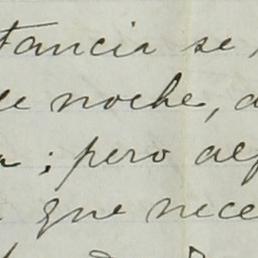 tancia se
de noche, a
; pero alg
que nece